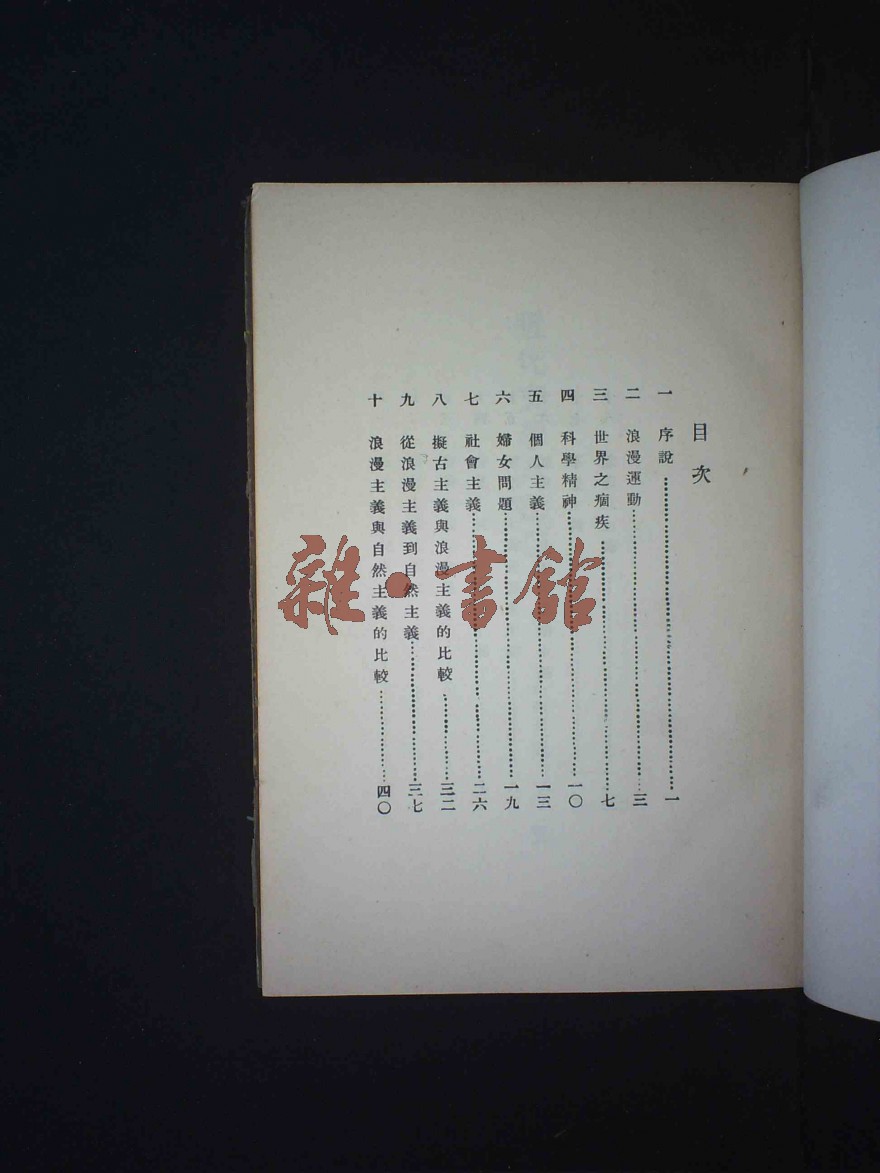 目次
一 序說 一
二 浪漫運動 三
三 世界之痼疾 七
四 科學精神 一〇
五 個人主義 一三
六 婦女問題 一九
七 社會主義 二六
八 擬古主義與浪漫主義的比較 三二
九 從浪漫主義到自然主義 三七
十 浪漫主義與自然主義的比較 四〇
雜·書館